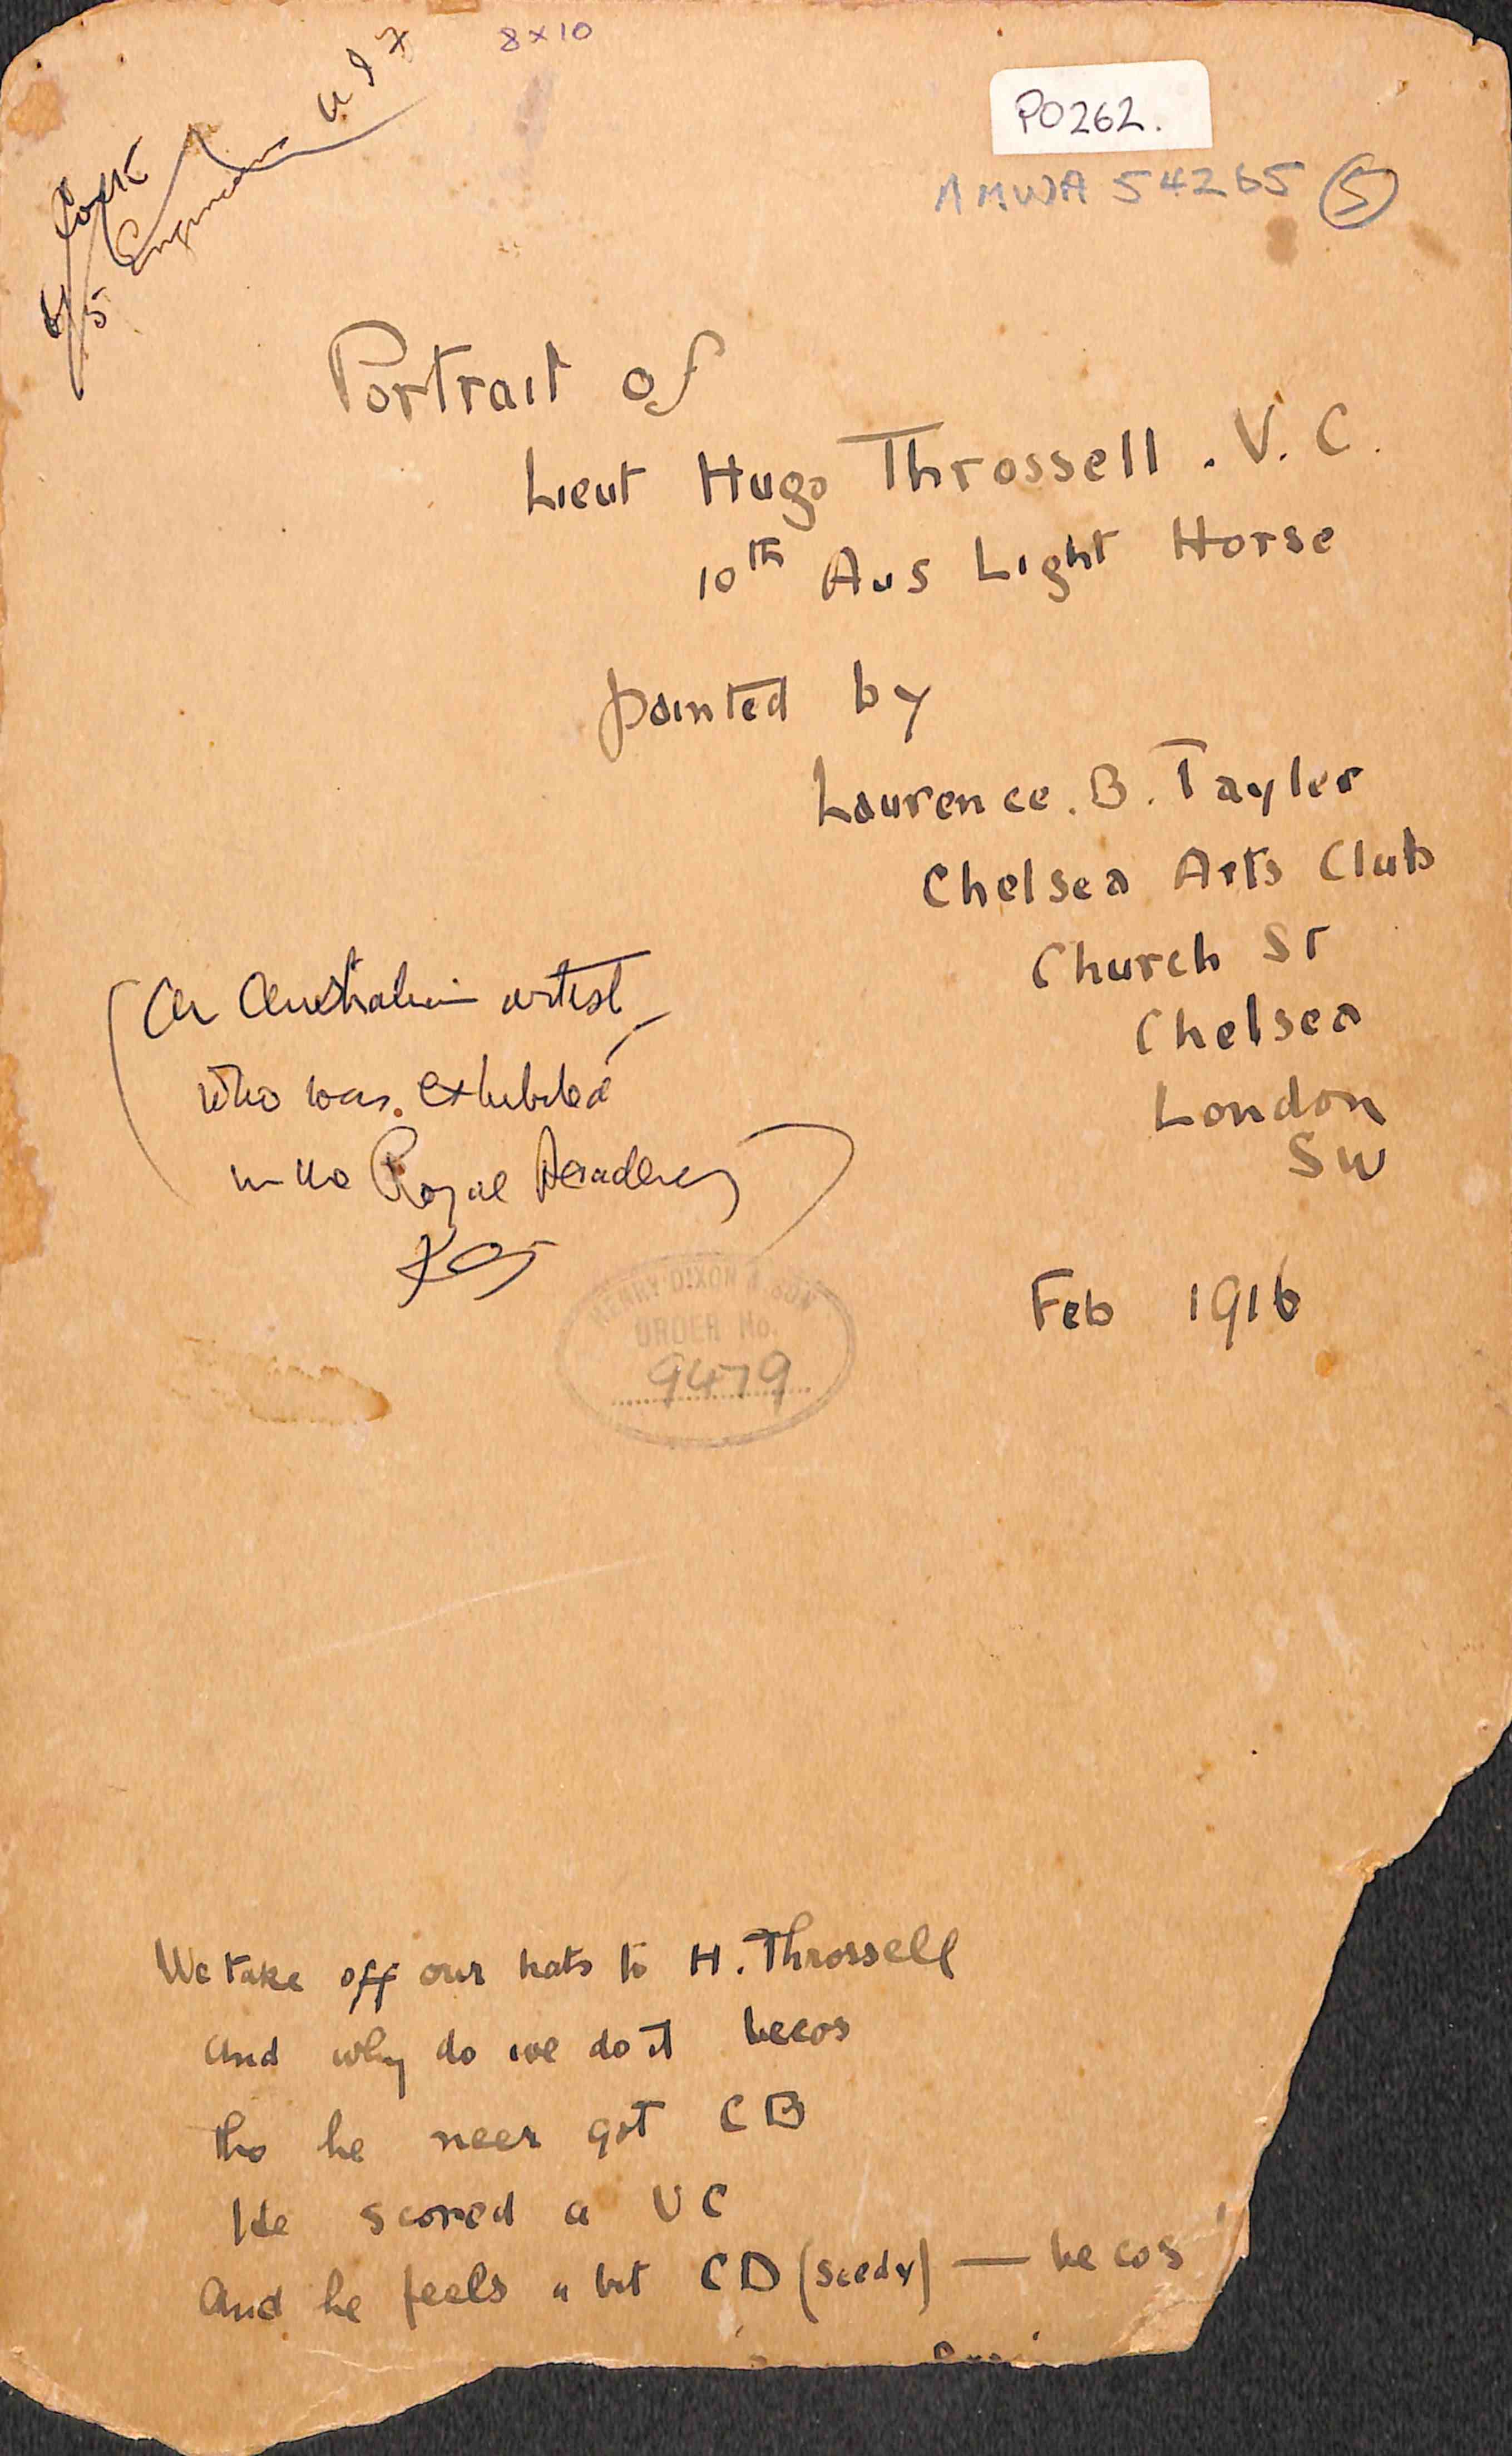 8x10
PO262.
AMWA 54265 (5)
Portrait of
Lieut Hugo Throssell . V. C.
10th Aus Light Horse
painted by
Laurence. B. Tayler
Chelsea Arts Club
Church St
Chelsea
London
SW
(An Australian artist
who was exhibited
in the Royal Academy)
HENRY DIXON & SON
ORDER No.
9479
Feb 1916
We take off our hats to H. Throssell
and why do we do it becos
tho he neer got CB
He scored a VC
And he feels a bit CD (seedy) — becos